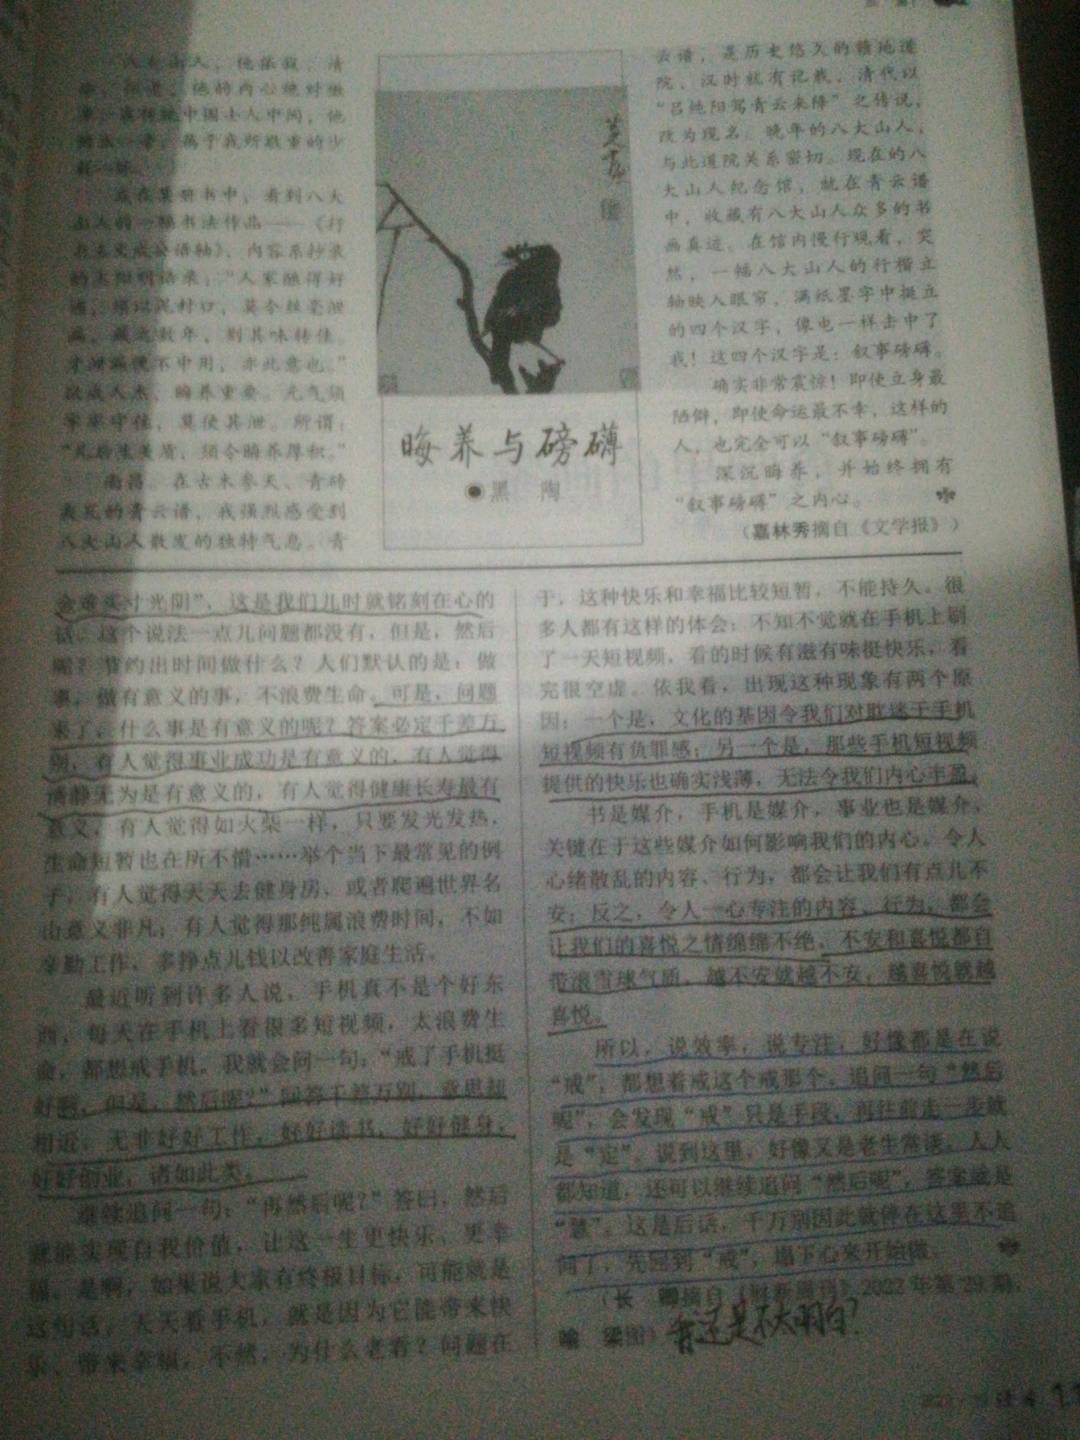 八大山人，他孤寂、清
我在某册书中，看到八大
山人的一幅书法作品——《行
内容系抄录
的王阳明语录："人家酿得好
酒，须以泥封口，莫令丝毫泄
漏，藏之数年，则其味转佳。
才泄漏便不中用，亦此意也。"
晦养重要。元气须
牢牢守住，莫使其泄。所谓：
须令晦养厚积。"
南昌。在古木参天、青砖
灰瓦的青云谱，我强烈感受到
八大山人散发的独特气息。青
晦养与磅礴
◉黑 陶
云谱，是历史悠久的赣地道
院，汉时就有记载，清代以
"吕纯阳驾青云来降"之传说，
改为现名。晚年的八大山人，
与此道院关系密切。现在的八
大山人纪念馆，就在青云谱
中，收藏有八大山人众多的书
画真迹。在馆内慢行观看，突
然，一幅八大山人的行楷立
轴映入眼帘，满纸墨字中挺立
的四个汉字，像电一样击中了
我！这四个汉字是：叙事磅礴。
确实非常震惊！即使立身最
陋僻，即使命运最不幸，这样的
人，也完全可以"叙事磅礴"。
深沉晦养，并始终拥有
"叙事磅礴"之内心。
（嘉林秀摘自《文学报》）
金难买寸光阴"，这是我们儿时就铭刻在心的
话。这个说法一点儿问题都没有，但是，然后
呢？节约出时间做什么？人们默认的是：做
事，做有意义的事，不浪费生命。可是，问题
来了，什么事是有意义的呢？答案必定千差万
别，有人觉得事业成功是有意义的，有人觉得
清静无为是有意义的，有人觉得健康长寿最有
意义，有人觉得如火柴一样，只要发光发热，
生命短暂也在所不惜……举个当下最常见的例
子，有人觉得天天去健身房，或者爬遍世界名
山意义非凡；有人觉得那纯属浪费时间，不如
辛勤工作，多挣点儿钱以改善家庭生活。
最近听到许多人说，手机真不是个好东
西，每天在手机上看很多短视频，太浪费生
命，都想戒手机。我就会问一句："戒了手机挺
好啊，但是，然后呢？"回答千差万别，意思却
相近，无非好好工作，好好读书，好好健身，
好好创业，诸如此类。
继续追问一句："再然后呢？"答曰，然后
就能实现自我价值，让这一生更快乐、更幸
福。是啊，如果说大家有终极目标，可能就是
这句话，天天看手机，就是因为它能带来快
乐、带来幸福，不然，为什么老看？问题在
于，这种快乐和幸福比较短暂，不能持久。很
多人都有这样的体会：不知不觉就在手机上刷
了一天短视频，看的时候有滋有味挺快乐，看
完很空虚。依我看，出现这种现象有两个原
因：一个是，文化的基因令我们对耽迷于手机
短视频有负罪感；另一个是，那些手机短视频
提供的快乐也确实浅薄，无法令我们内心丰盈。
书是媒介，手机是媒介，事业也是媒介，
关键在于这些媒介如何影响我们的内心。令人
心绪散乱的内容、行为，都会让我们有点儿不
安；反之，令人一心专注的内容、行为，都会
让我们的喜悦之情绵绵不绝。不安和喜悦都自
带滚雪球气质，越不安就越不安；越喜悦就越
喜悦。
所以，说效率，说专注，好像都是在说
"戒"；都想着戒这个戒那个。追问一句"然后
呢"，会发现"戒"只是手段，再往前走一步就
是"定"。说到这里，好像又是老生常谈，人人
都知道，还可以继续追问"然后呢"，答案就是
"慧"。这是后话，千万别因此就停在这里不追
问了，先回到"戒"，塌下心来开始做。
（长 卿摘自《财新周刊》2022年第29期，
喻 梁图）
我还是不太明白？